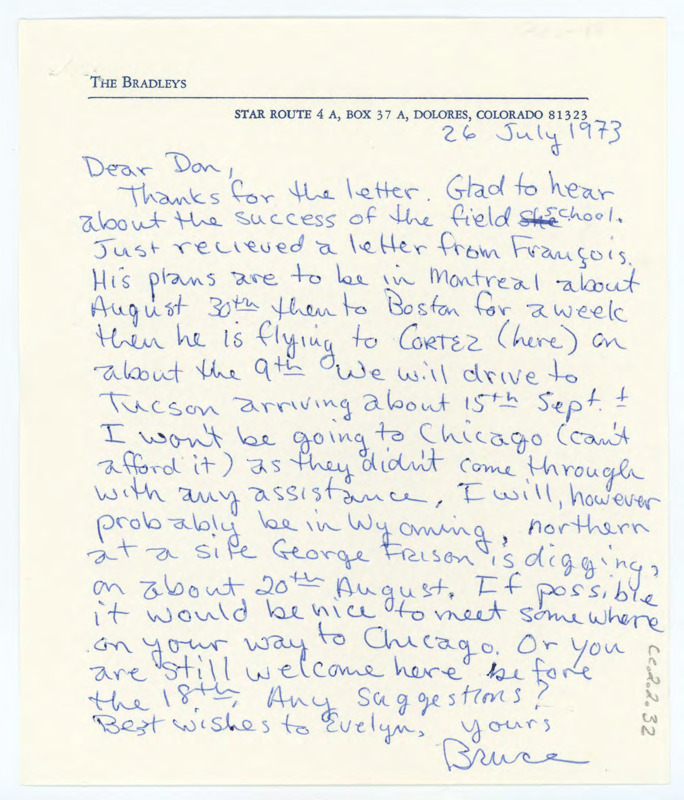 THE BRADLEYS
STAR ROUTE 4 A, BOX 37 A, DOLORES, COLORADO 81323
26 July 1973
Dear Don,
Thanks for the letter. Glad to hear
about the success of the field school.
Just recieved a letter from François.
His plans are to be in Montreal about
August 30th then to Boston for a week
then he is flying to CORTEZ (here) on
about the 9th We will drive to
Tucson arriving about 15th Sept. ±
I won't be going to Chicago (can't
afford it) as they didn't come through
with any assistance, I will, however
probably be in Wyoming, northern
at a site George Frison is digging,
on about 20th August. If possible
it would be nice to meet somewhere
on your way to Chicago. Or you
are still welcome here before
the 18th. Any suggestions?
Best wishes to Evelyn, yours
Bruce
Ce2.2.32